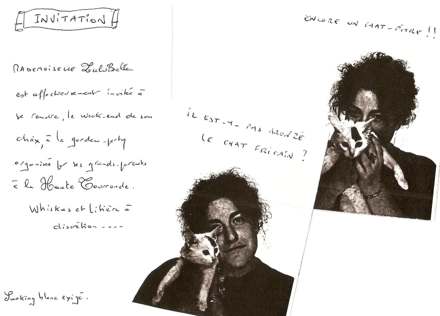 INVITATION
MADEMOISELLE LuluBelle
est affectueusement invitée à
se rendre, le week-end de son
choix, à la garden-party
organisée par ses grands-parents
à la Haute
Whiskas et litière à
discrétion ----
Smoking blanc exigé.
ENCORE UN CHAT-PITRE !!
IL EST-Y-PAS BRONZÉ
LE CHAT FÉLICAIN ?